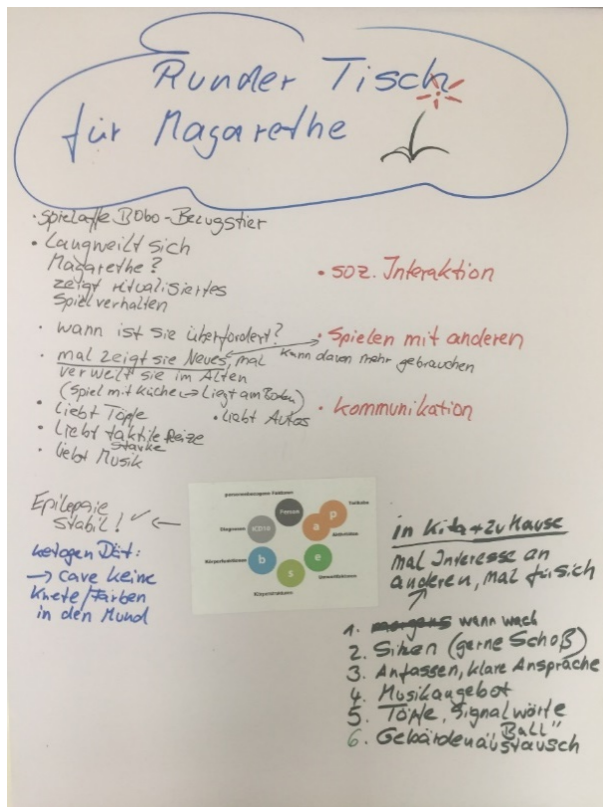 Runder Tisch
für Magarethe
· Spielaffe Bobo-Bezugstier
· Langweilt sich
Magarethe?
zeigt ritualisiertes
Spielverhalten
· wann ist sie überfordert?
· mal zeigt sie Neues, mal
verweilt sie im Alten
(Spiel mit Küche → liegt am Boden)
· liebt Töpfe
· liebt Autos
· liebt taktile Reize
starke
· liebt Musik
· soz. Interaktion
· Spielen mit anderen
kann davon mehr gebrauchen
· Kommunikation
Epilepsie
stabil! ✓ ←
ketogen Diät:
→ cave keine
Knete/Farben
in den Mund
personenbezogene Faktoren
Person
Teilhabe
p
a
Aktivitäten
Diagnosen
ICD10
Körperfunktionen
b
e
Umweltfaktoren
s
Körperstrukturen
in Kita + zu Hause
mal Interesse an
anderen, mal für sich
1. morgens wann wach
2. Sitzen (gerne Schoß)
3. Anfassen, klare Ansprache
4. Musikangebot
5. Töpfe, Signalwörte
"Ball"
6. Gebärdenaustausch